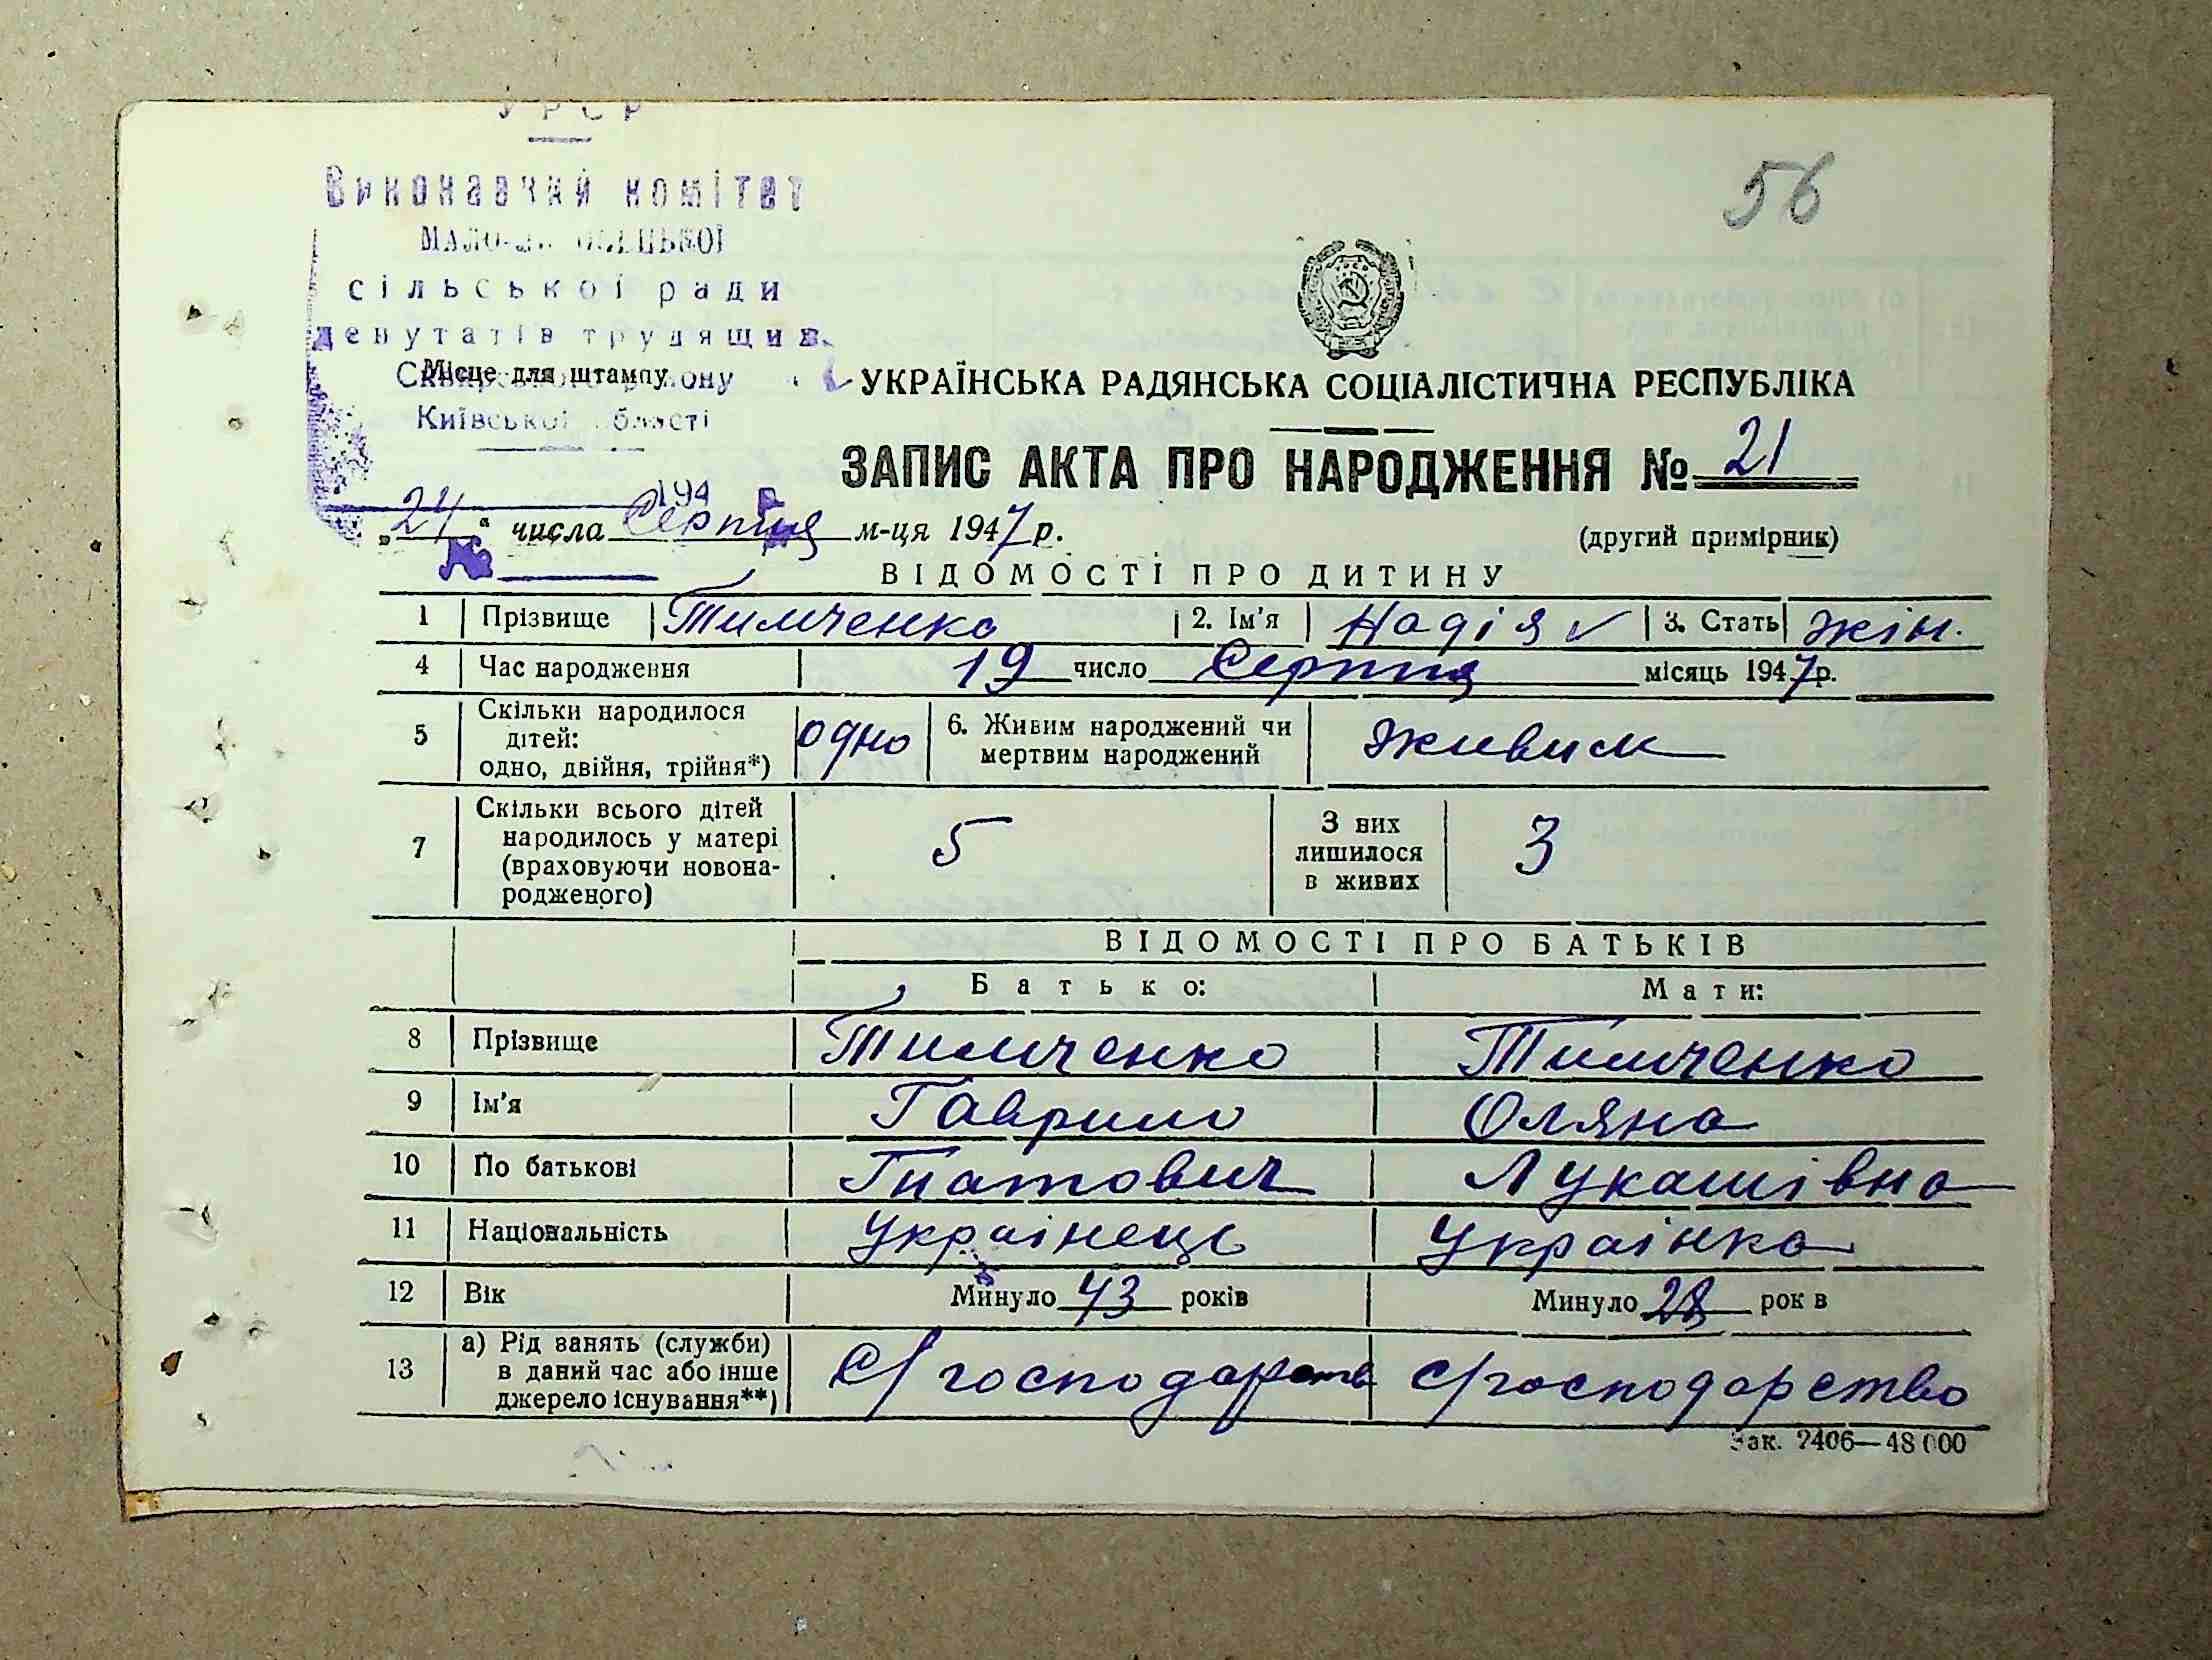 УРСР
56
Виконавчий комітет
сільської ради
депутатів трудящих
Місце для штампу
Київської області
УКРАЇНСЬКА РАДЯНСЬКА СОЦІАЛІСТИЧНА РЕСПУБЛІКА
ЗАПИС АКТА ПРО НАРОДЖЕННЯ № 21
194 р.
„24“ числа Серпня м-ця 1947 р.
(другий примірник)
ВІДОМОСТІ ПРО ДИТИНУ
1 Прізвище Тимченко 2. Ім'я Надія 3. Стать жін.
4 Час народження 19 число Серпня місяць 1947 р.
5 Скільки народилося дітей: одно, двійня, трійня*) одно 6. Живим народжений чи мертвим народжений живим
7 Скільки всього дітей народилось у матері (враховуючи новонародженого) 5 З них лишилося в живих 3
ВІДОМОСТІ ПРО БАТЬКІВ
Батько: Мати:
8 Прізвище Тимченко Тимченко
9 Ім'я Гаврило Оляна
10 По батькові Гнатович Лукашівна
11 Національність Українець Українка
12 Вік Минуло 43 років Минуло 28 років
13 а) Рід занять (служби) в даний час або інше джерело існування**) с/господарств с/господарство
Зак. 2406—48000